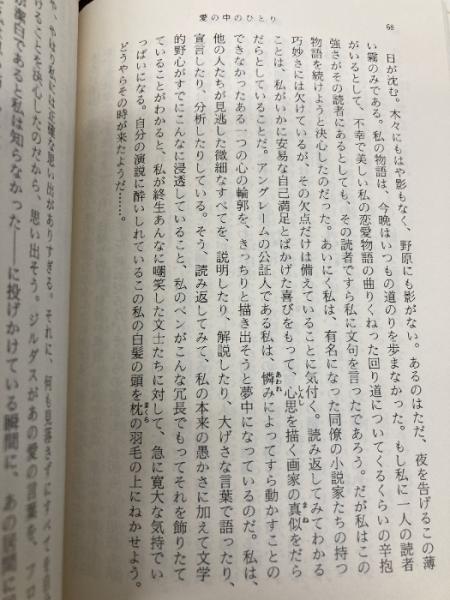 68
愛の中のひとり
日が沈む。木々にもはや影もなく、野原にも影がない。あるのはただ、夜を告げるこの薄
い霧のみである。私の物語は、今晩はいつもの道のりを歩まなかった。もし私に一人の読者
がいるとして、不幸で美しい私の恋愛物語の曲りくねった回り道についてくるくらいの辛抱
強さがその読者にあるとしても、その読者ですら私に文句を言ったであろう。だが私はこの
物語を続けようと決心したのだった。あいにく私は、有名になった同僚の小説家たちの持つ
巧妙さには欠けているが、その欠点だけは備えていることに気付く。読み返してみてわかる
ことは、私がいかに安易な自己満足とばかげた喜びをもって、心思を描く画家の真似をだら
だらとしていることだ。アングレームの公証人である私は、憐みによってすら動かすことの
できなかったある一つの心の輪郭を、きっちりと描き出そうと夢中になっているのだ。私は、
他の人たちが見逃した微細なすべてを、説明したり、解説したり、大げさな言葉で語ったり、
宣言したり、分析したりしている。そう、読み返してみて、私の本来の愚かさに加えて文学
的野心がすでにこんなに浸透していること、私のペンがこんな冗長でもってそれを飾りたて
ていることがわかると、私が終生あんなに嘲笑した文士たちに対して、急に寛大な気持でい
っぱいになる。自分の演説に酔いしれているこの私の白髪の頭を枕の羽毛の上にねかせよう。
どうやらその時が来たようだ……。
や、やはり私には正確な思い出がありすぎる。それに、何も見落さずにすべてを
けることを決心したのだから、思い出そう。ジルダスがあの愛の言葉を、フロ
潔白であると私は知らなかった――に投げかけている瞬間に、あの居間に